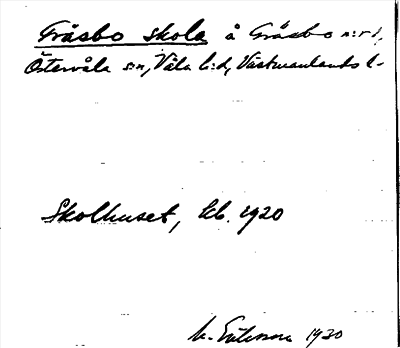 Gräsbo skola å Gräsbo n:r 1,
Östervåla s:n, Våla h:d, Västmanlands l.
Skolhuset, 1920
1930